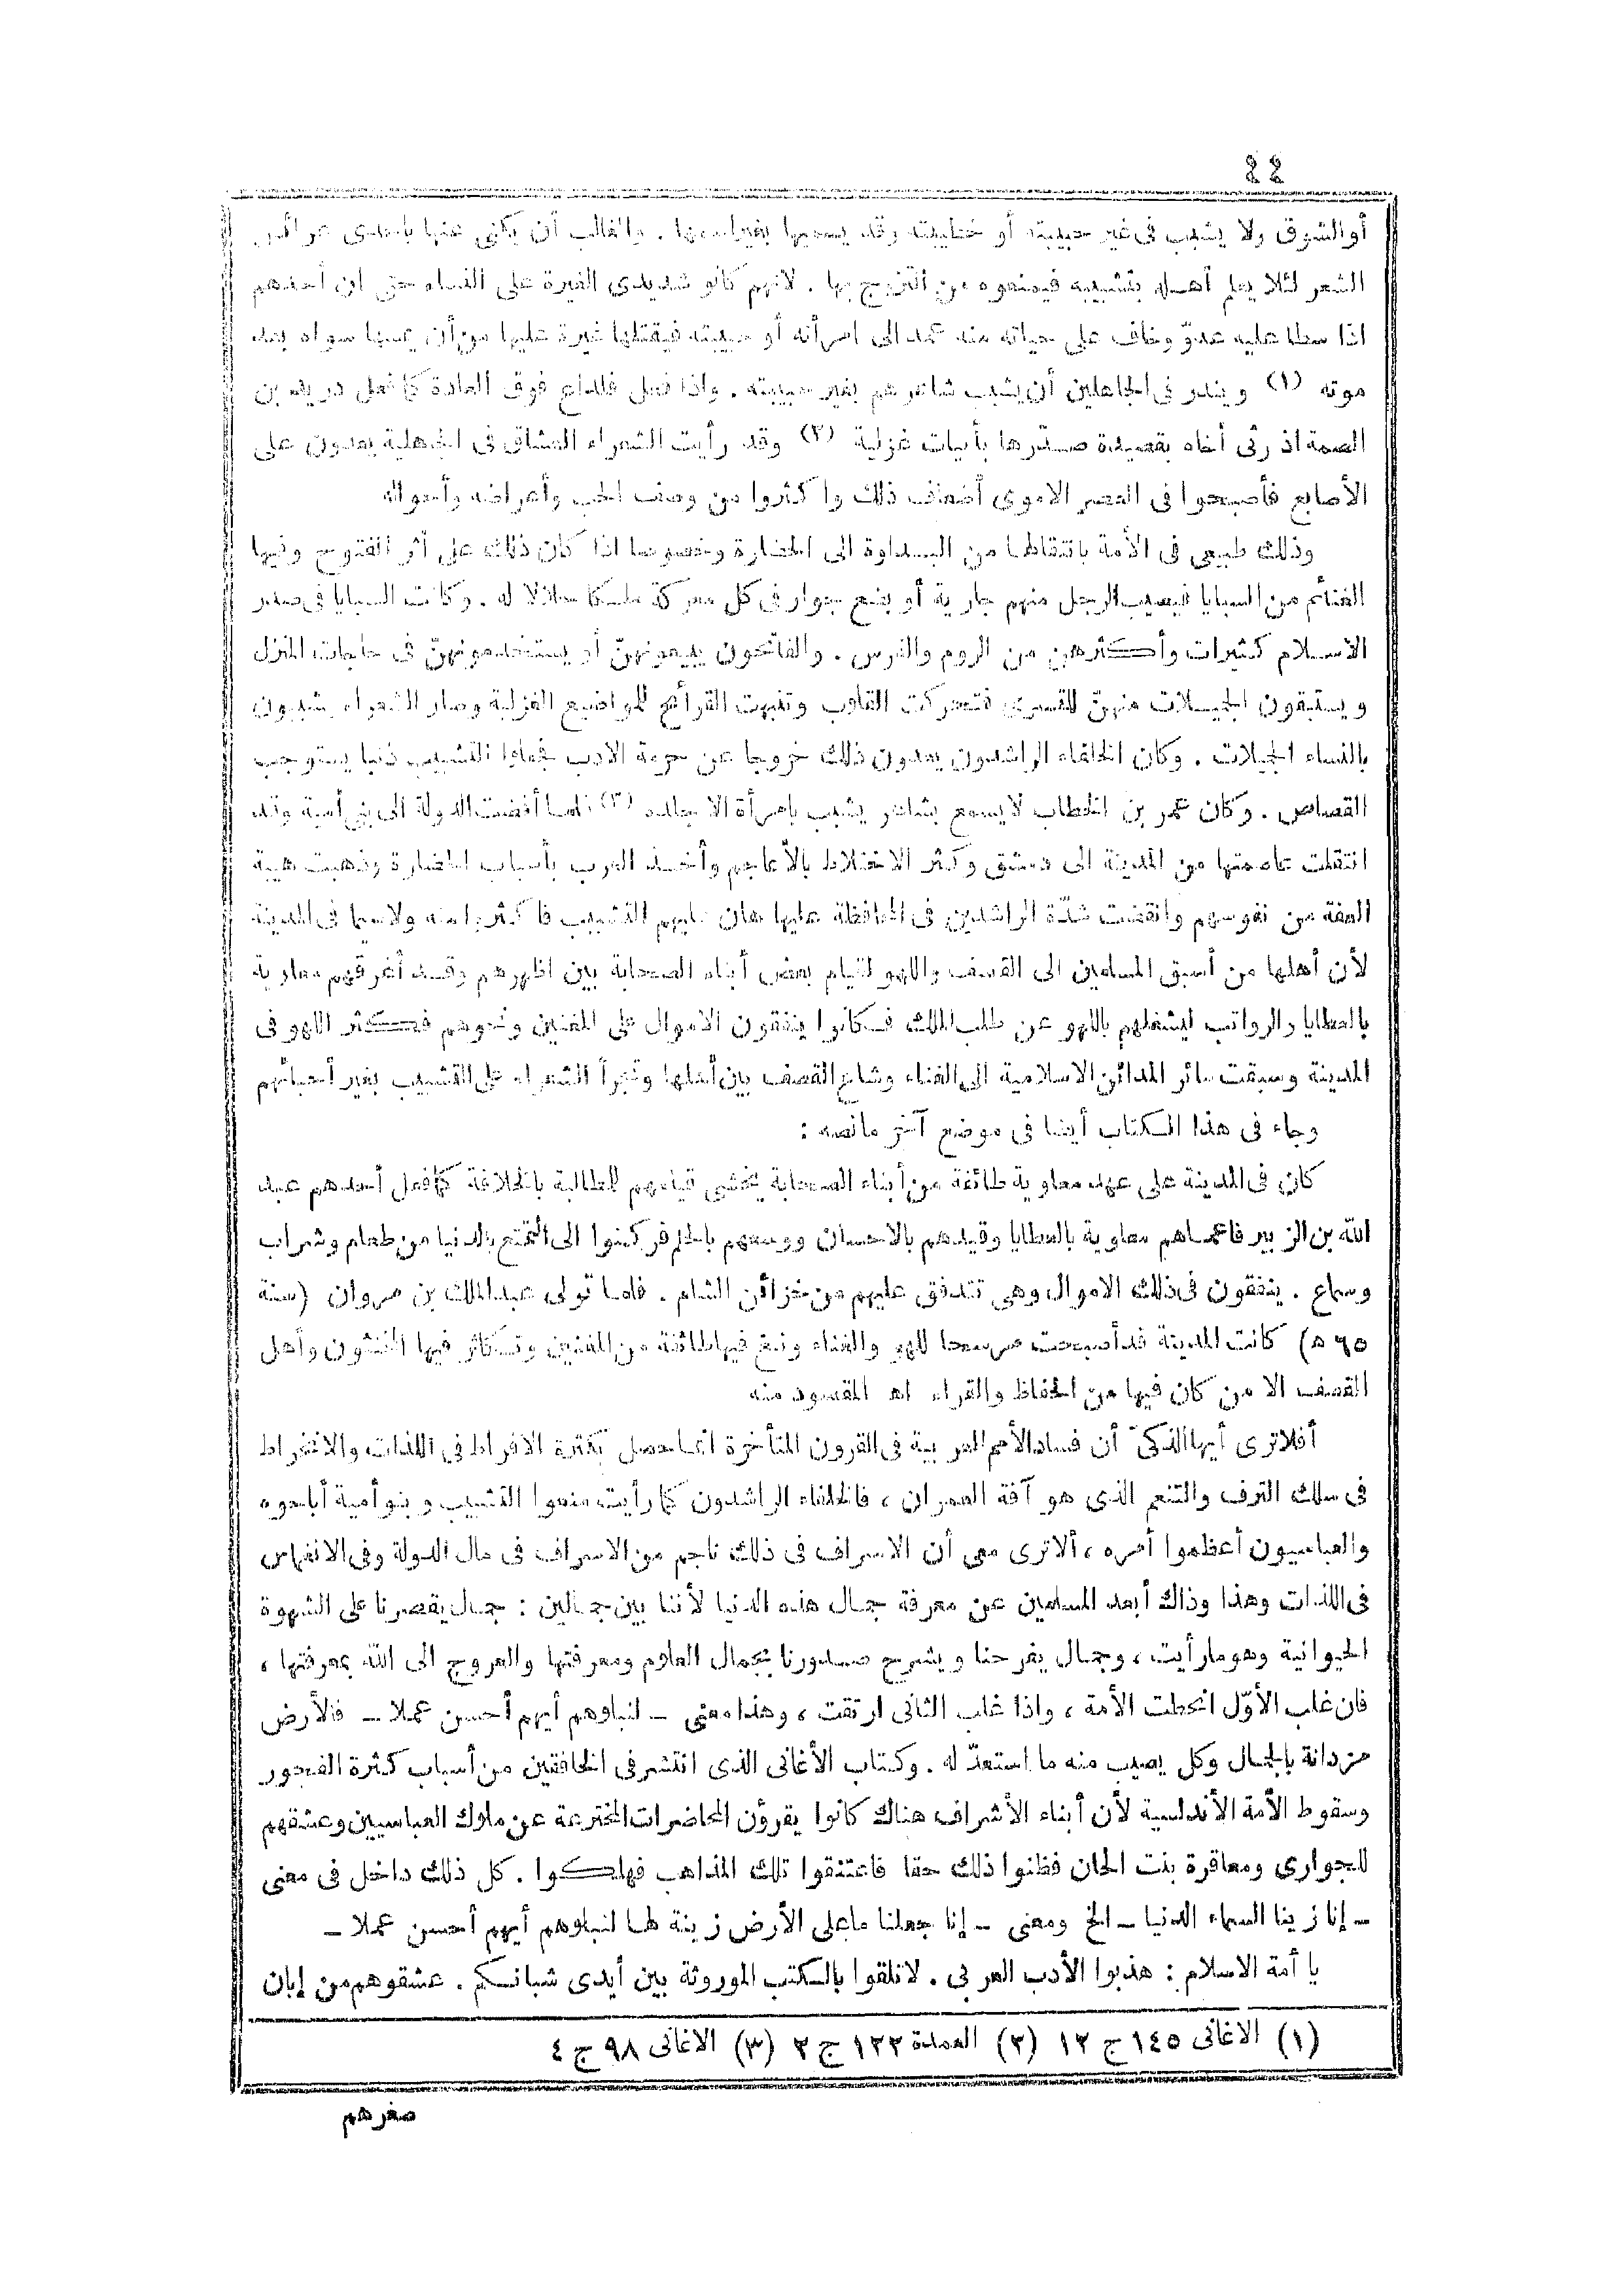 ٤٤
أو الشوق ولا يشبب فى غير حبيبته أو خطيبته وقد يسميها بغير اسمها . والغالب أن يكنى عنها باحدى عرائس
الشعر لئلا يعلم أهله بتشبيبه فيمنعوه من التزوج بها . لانهم كانوا شديدى الغيرة على النساء حتى ان أحدهم
اذا سطا عليه عدوّ وخاف على حياته منه عمد الى امرأته أو حبيبته فيقتلها غيرة عليها من أن يمسها سواه بعد
موته (١) ويندر فى الجاهلين أن يشبب شاعرهم بغير حبيبته . واذا فعل فلداع فوق العادة كما فعل دريد بن
الصمة اذ رثى أخاه بقصيدة صدّرها بأبيات غزلية (٢) وقد رأيت الشعراء العشاق فى الجاهلية يعدون على
الأصابع فأصبحوا فى العصر الاموى أضعاف ذلك وأكثروا من وصف الحب وأعراضه وأحواله
وذلك طبيعى فى الأمة بانتقالها من البداوة الى الحضارة وخصوصا اذا كان ذلك على أثر الفتوح وفيها
الغنائم من السبايا فيصيب الرجل منهم جارية أو بضع جوار فى كل معركة ملكا حلالا له . وكانت السبايا فى صدر
الاسلام كثيرات وأكثرهن من الروم والفرس . والفاتحون يبيعونهنّ أو يستخدمونهنّ فى حاجات المنزل
ويستبقون الجميلات منهنّ للتسرى فتحركت القلوب وتنبهت القرائح للمواضيع الغزلية وصار الشعراء يشببون
بالنساء الجميلات . وكان الخلفاء الراشدون يعدون ذلك خروجا عن حرمة الادب فجعلوا التشبيب ذنبا يستوجب
القصاص . وكان عمر بن الخطاب لا يسمع بشاعر يشبب بامرأة الا جلده (٣) فلما أفضت الدولة الى بنى أمية وقد
انتقلت عاصمتها من المدينة الى دمشق وكثر الاختلاط بالأعاجم وأخذ العرب بأسباب الحضارة وذهبت هيبة
العفة من نفوسهم وانقضت شدّة الراشدين فى المحافظة عليها هان عليهم التشبيب فأكثروا منه ولاسيما فى المدينة
لأن أهلها من أسبق المسلمين الى القصف واللهو لقيام بعض أبناء الصحابة بين اظهرهم وقد أغرقهم معاوية
بالعطايا والرواتب ليشغلهم باللهو عن طلب الملك فكانوا ينفقون الاموال على المغنين ونحوهم فكثر اللهو فى
المدينة وسبقت سائر المدائن الاسلامية الى الغناء وشاع القصف بين أهلها وتجرأ الشعراء على التشبيب بغير أحبائهم
وجاء فى هذا الكتاب أيضا فى موضع آخر مانصه :
كان فى المدينة على عهد معاوية طائفة من أبناء الصحابة يخشى قيامهم للطالبة بالخلافة كما فعل أحدهم عبد
الله بن الزبير فأعماهم معاوية بالعطايا وقيدهم بالاحسان ووسعهم بالحلم فركنوا الى التمتع بالدنيا من طعام وشراب
وسماع . ينفقون فى ذلك الاموال وهى تتدفق عليهم من خزائن الشام . فلما تولى عبد الملك بن مروان (سنة
٦٥ ه) كانت المدينة قد أصبحت مرسحا للهو والغناء ونبغ فيها طائفة من المغنين وتكاثر فيها المخنثون وأهل
القصف الا من كان فيها من الحفاظ والقراء اه المقصود منه
أفلا ترى أيها الذكىّ أن فساد الأمم العربية فى القرون المتأخرة انما حصل بكثرة الافراط فى اللذات والانخراط
فى سلك الترف والتنعم الذى هو آفة العمران ، فالخلفاء الراشدون كما رأيت منعوا التشبيب وبنو أمية أباحوه
والعباسيون أعظموا أمره ، ألا ترى معى أن الاسراف فى ذلك ناجم من الاسراف فى مال الدولة وفى الانغماس
فى اللذات وهذا وذاك أبعد المسلمين عن معرفة جمال هذه الدنيا لأننا بين جمالين : جمال يقصرنا على الشهوة
الحيوانية وهو ما رأيت ، وجمال يفرحنا ويشرح صدورنا بجمال العلوم ومعرفتها والعروج الى الله بمعرفتها ،
فان غلب الأوّل انحطت الأمة ، واذا غلب الثانى ارتقت ، وهذا معنى ــ لنبلوهم أيهم أحسن عملا ــ فالأرض
مزدانة بالجمال وكل يصيب منه ما استعدّ له . وكتاب الأغانى الذى انتشر فى الخافقين من أسباب كثرة الفجور
وسقوط الأمة الأندلسية لأن أبناء الأشراف هناك كانوا يقرؤن المحاضرات المخترعة عن ملوك العباسيين وعشقهم
للجوارى ومعاقرة بنت الحان فظنوا ذلك حقا فاعتنقوا تلك المذاهب فهلكوا . كل ذلك داخل فى معنى
ــ إنا زينا السماء الدنيا ــ الخ ومعنى ــ إنا جعلنا ما على الأرض زينة لها لنبلوهم أيهم أحسن عملا ــ
يا أمة الاسلام : هذبوا الأدب العربى . لا تلقوا بالكتب الموروثة بين أيدى شبانكم . عشقوهم من إبان
(١) الاغانى ١٤٥ ج ١٢ (٢) العمدة ١٢٢ ج ٢ (٣) الاغانى ٩٨ ج ٤
صغرهم